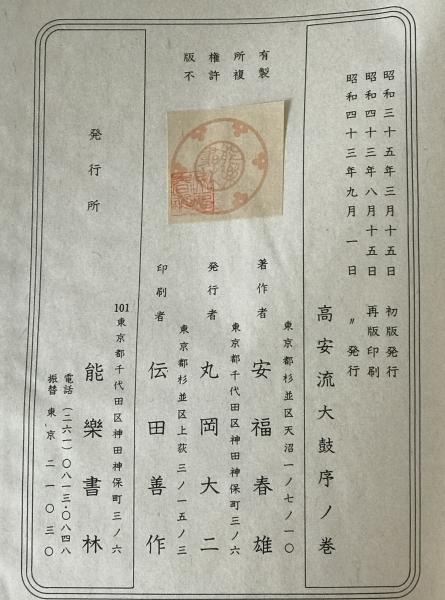 昭和三十五年三月十五日 初版発行
昭和四十三年八月十五日 再版印刷
昭和四十三年九月一日 〃発行
高安流大鼓序ノ巻
有製
所複
権許
版不
東京都杉並区天沼一ノ七ノ一〇
著作者 安福春雄
東京都千代田区神田神保町三ノ六
発行者 丸岡大二
東京都杉並区上荻三ノ一五ノ三
印刷者 伝田善作
発行所
101東京都千代田区神田神保町三ノ六
能樂書林
電話(二六一)〇八一三・〇八四八
振替 東京 二一〇三〇